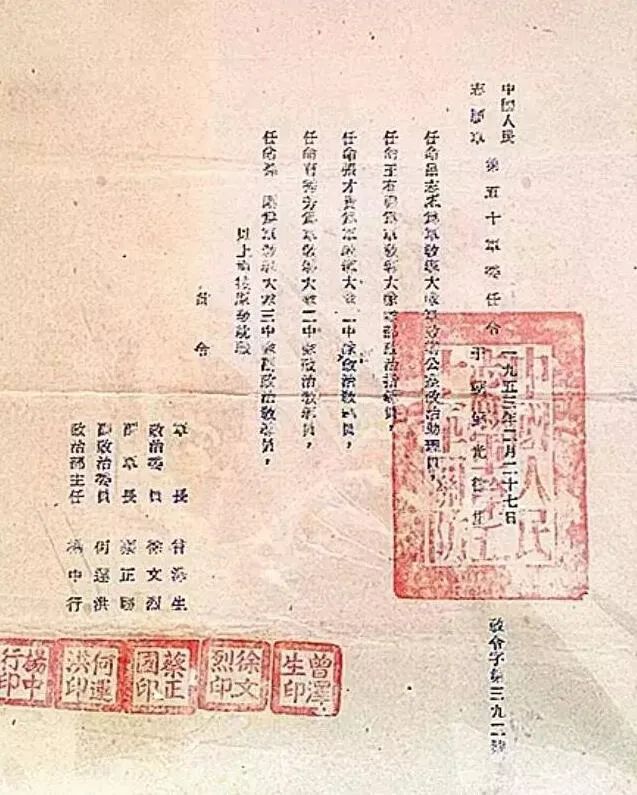 中國人民
志願軍
第五十軍委任令
一九五三年二月二十七日
于朝鮮
政令字第三九二號
任命呂志杰為軍教導大隊政治助理員，
任命王右為軍教導大隊部政治指導員，
任命張才貴為軍教導大隊一中隊政治教導員，
任命秀芳為軍教導大隊二中隊政治教導員，
任命孫 剛為軍教導大隊三中隊副政治教導員，
以上
此令
軍長 曾澤生
政治委員 徐文烈
副軍長 蔡正國
副政治委員 何運洪
政治部主任 楊中行
中國人民
曾澤生印
徐文烈印
蔡正國印
何運洪印
楊中行印